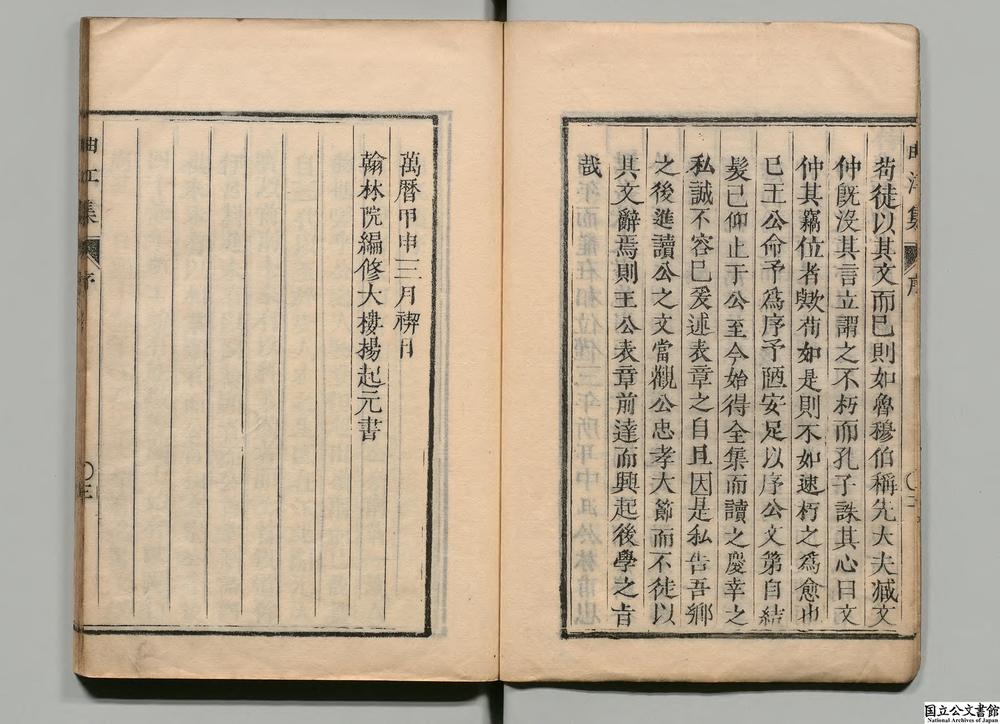 苟徒以其文而已則如魯穆伯稱先大夫臧文
仲旣沒其言立謂之不朽而孔子誅其心曰文
仲其竊位者歟苟如是則不如速朽之爲愈也
已王公命予爲序予陋安足以序公文第自結
髮已仰止于公至今始得全集而讀之慶幸之
私誠不容已爰述表章之自且因是私告吾鄉
之後進讀公之文當觀公忠孝大節而不徒以
其文辭焉則王公表章前達而興起後學之旨
哉
萬曆甲申三月禊日
翰林院編修大樓揚起元書
曲江集
序
三
国立公文書館
National Archives of Japan